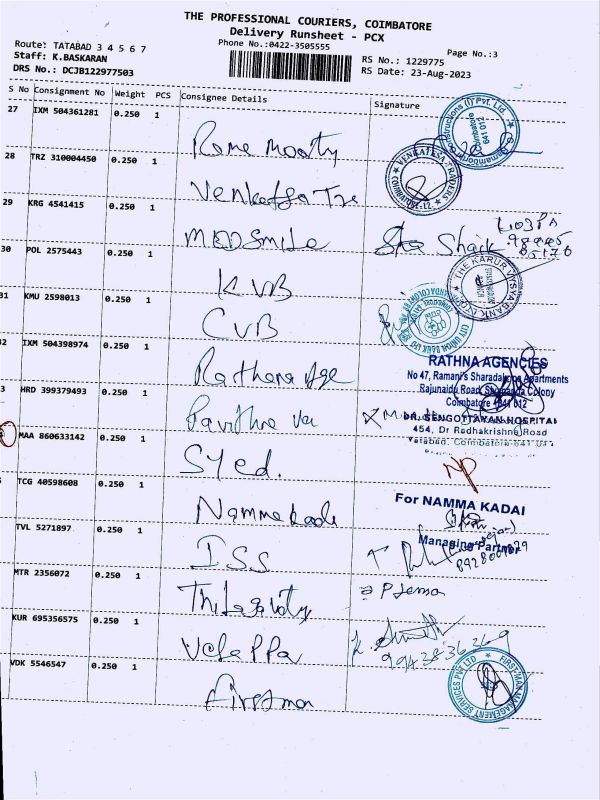 THE PROFESSIONAL COURIERS, COIMBATORE
Delivery Runsheet - PCX
Phone No.:0422-3505555
Page No.:3
Route: TATABAD 3 4 5 6 7
Staff: K.BASKARAN
DRS No.: DCJB122977503
RS No.: 1229775
RS Date: 23-Aug-2023
S No Consignment No Weight PCS Consignee Details Signature
27 IXM 504361281 0.250 1
Rama moorty
641 012
28 TRZ 310004450 0.250 1
Venkatesa Tra
VENKATESA TRADERS
COIMBATORE-12
29 KRG 4541415 0.250 1
MKD Smile
Shaik
30 POL 2575443 0.250 1
KVB
THE KARUR VYSYA BANK
31 KMU 2598013 0.250 1
CUB
CITY UNION BANK LTD
32 IXM 504398974 0.250 1
Rathana Age
RATHNA AGENCIES
No 47, Ramani's Sharadalaya Apartments
Rajunaidu Road, Colony
Coimbatore - 641 012
HRD 399379493 0.250 1
Pavithra
DR. SENGOTTAVAN HOSPITAL
454, Dr Radhakrishna Road
Tatabad, Coimbatore-641 012
MAA 860633142 0.250 1
Syed.
NP
TCG 40598608 0.250 1
Namma kadai
For NAMMA KADAI
Managing Partner
TVL 5271897 0.250 1
ISS
MTR 2356072 0.250 1
KUR 695356575 0.250 1
VDK 5546547 0.250 1
Firstman
FIRSTMAN MANAGEMENT SERVICES PVT LTD